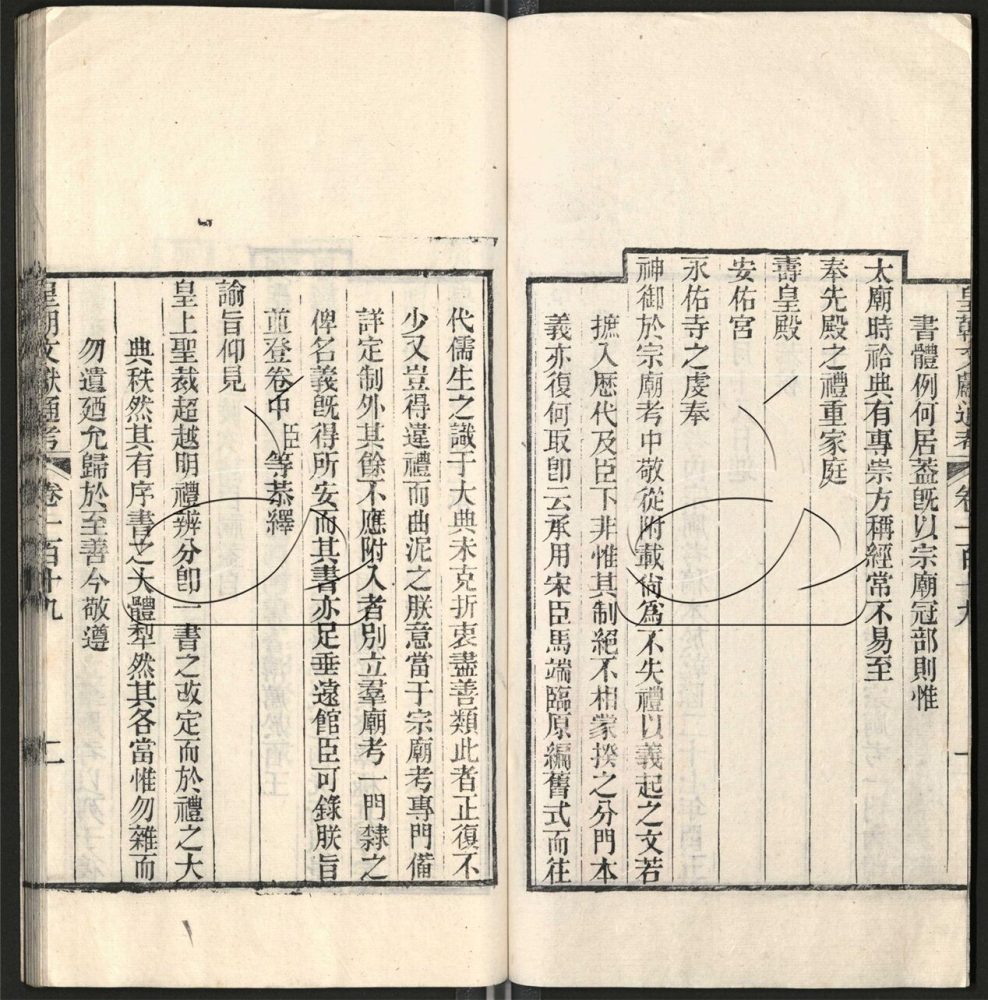 書體例何居蓋旣以宗廟冠部則惟
太廟時祫典有專崇方稱經常不易至
奉先殿之禮重家庭
壽皇殿
安佑宮
永佑寺之虔奉
神御於宗廟考中敬從附載尙爲不失禮以義起之文若
摭入歷代及臣下非惟其制絕不相蒙揆之分門本
義亦復何取卽云承用宋臣馬端臨原編舊式而往
代儒生之識于大典未克折衷盡善類此者正復不
少又豈得違禮而曲泥之朕意當于宗廟考專門備
詳定制外其餘不應附入者別立羣廟考一門隸之
俾名義旣得所安而其書亦足垂遠館臣可錄朕旨
並登卷中臣等恭繹
諭旨仰見
皇上聖裁超越明禮辨分卽一書之改定而於禮之大
典秩然其有序書之大體犁然其各當惟勿雜而
勿遺廼允歸於至善今敬遵
皇朝文獻通考 卷一百十九 二